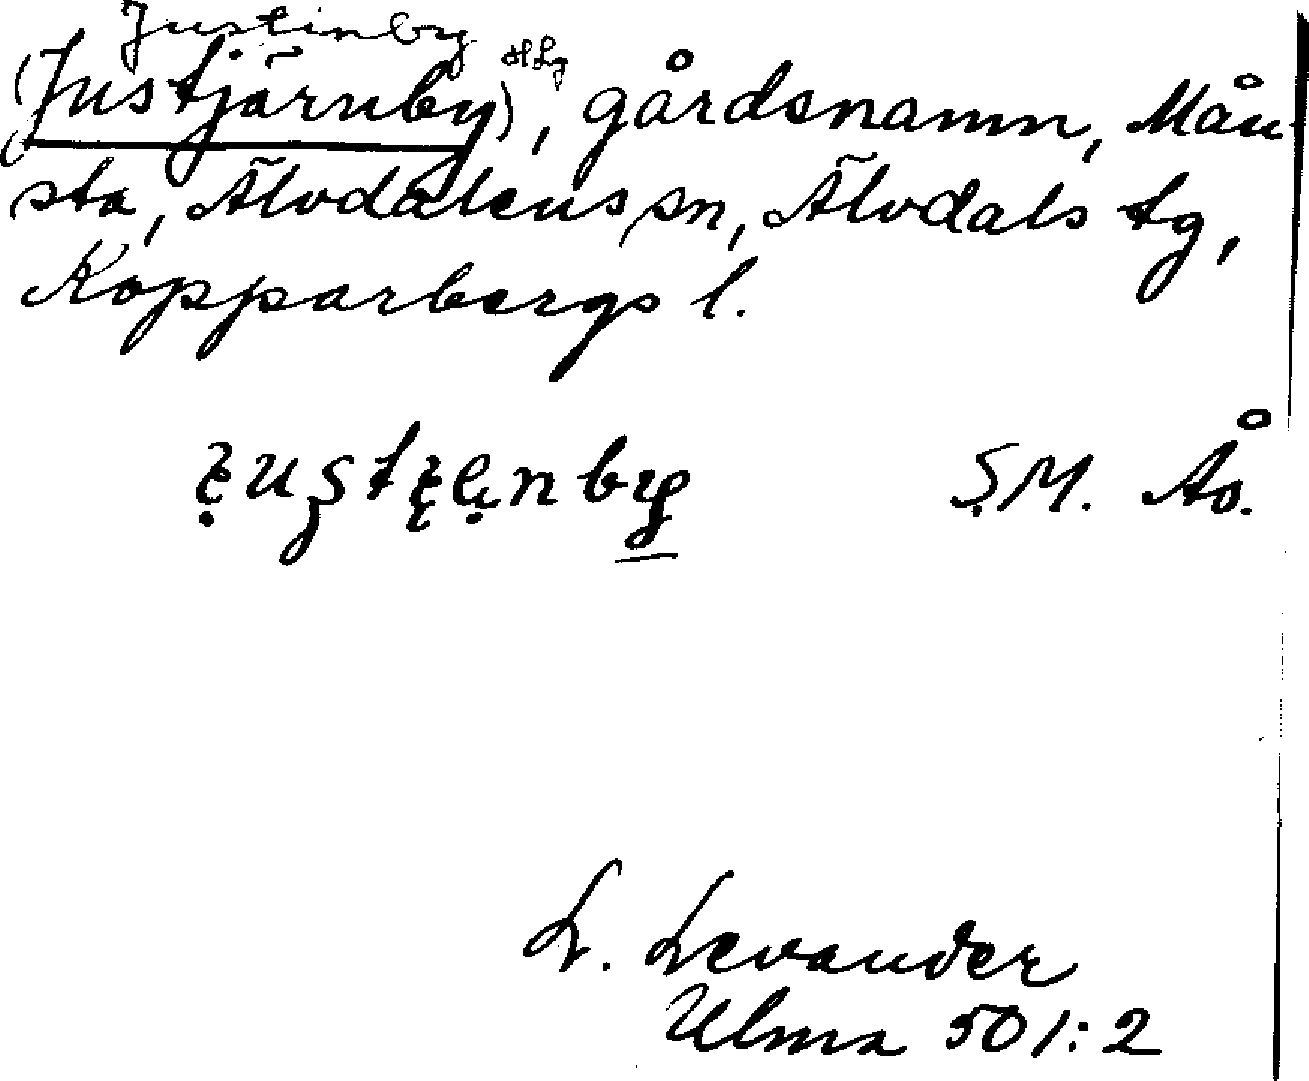 Justinby
(Justjärnby), gårdsnamn, Mån-
sta, Älvdalens sn, Älvdals tg,
Kopparbergs l.
S.M. Ås.
L. Levander
Ulma 501:2